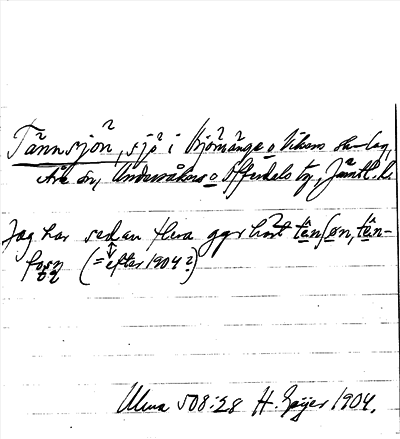 Tännsjön, sjö i Björnänge o Vikens sk-lag,
Åre sn, Undersåkers o Offerdals tg, Jämtl. l.
Jag har sedan flera ggr hört
(= efter 1904?)
Ulma 508:28 H. Geijer 1904.